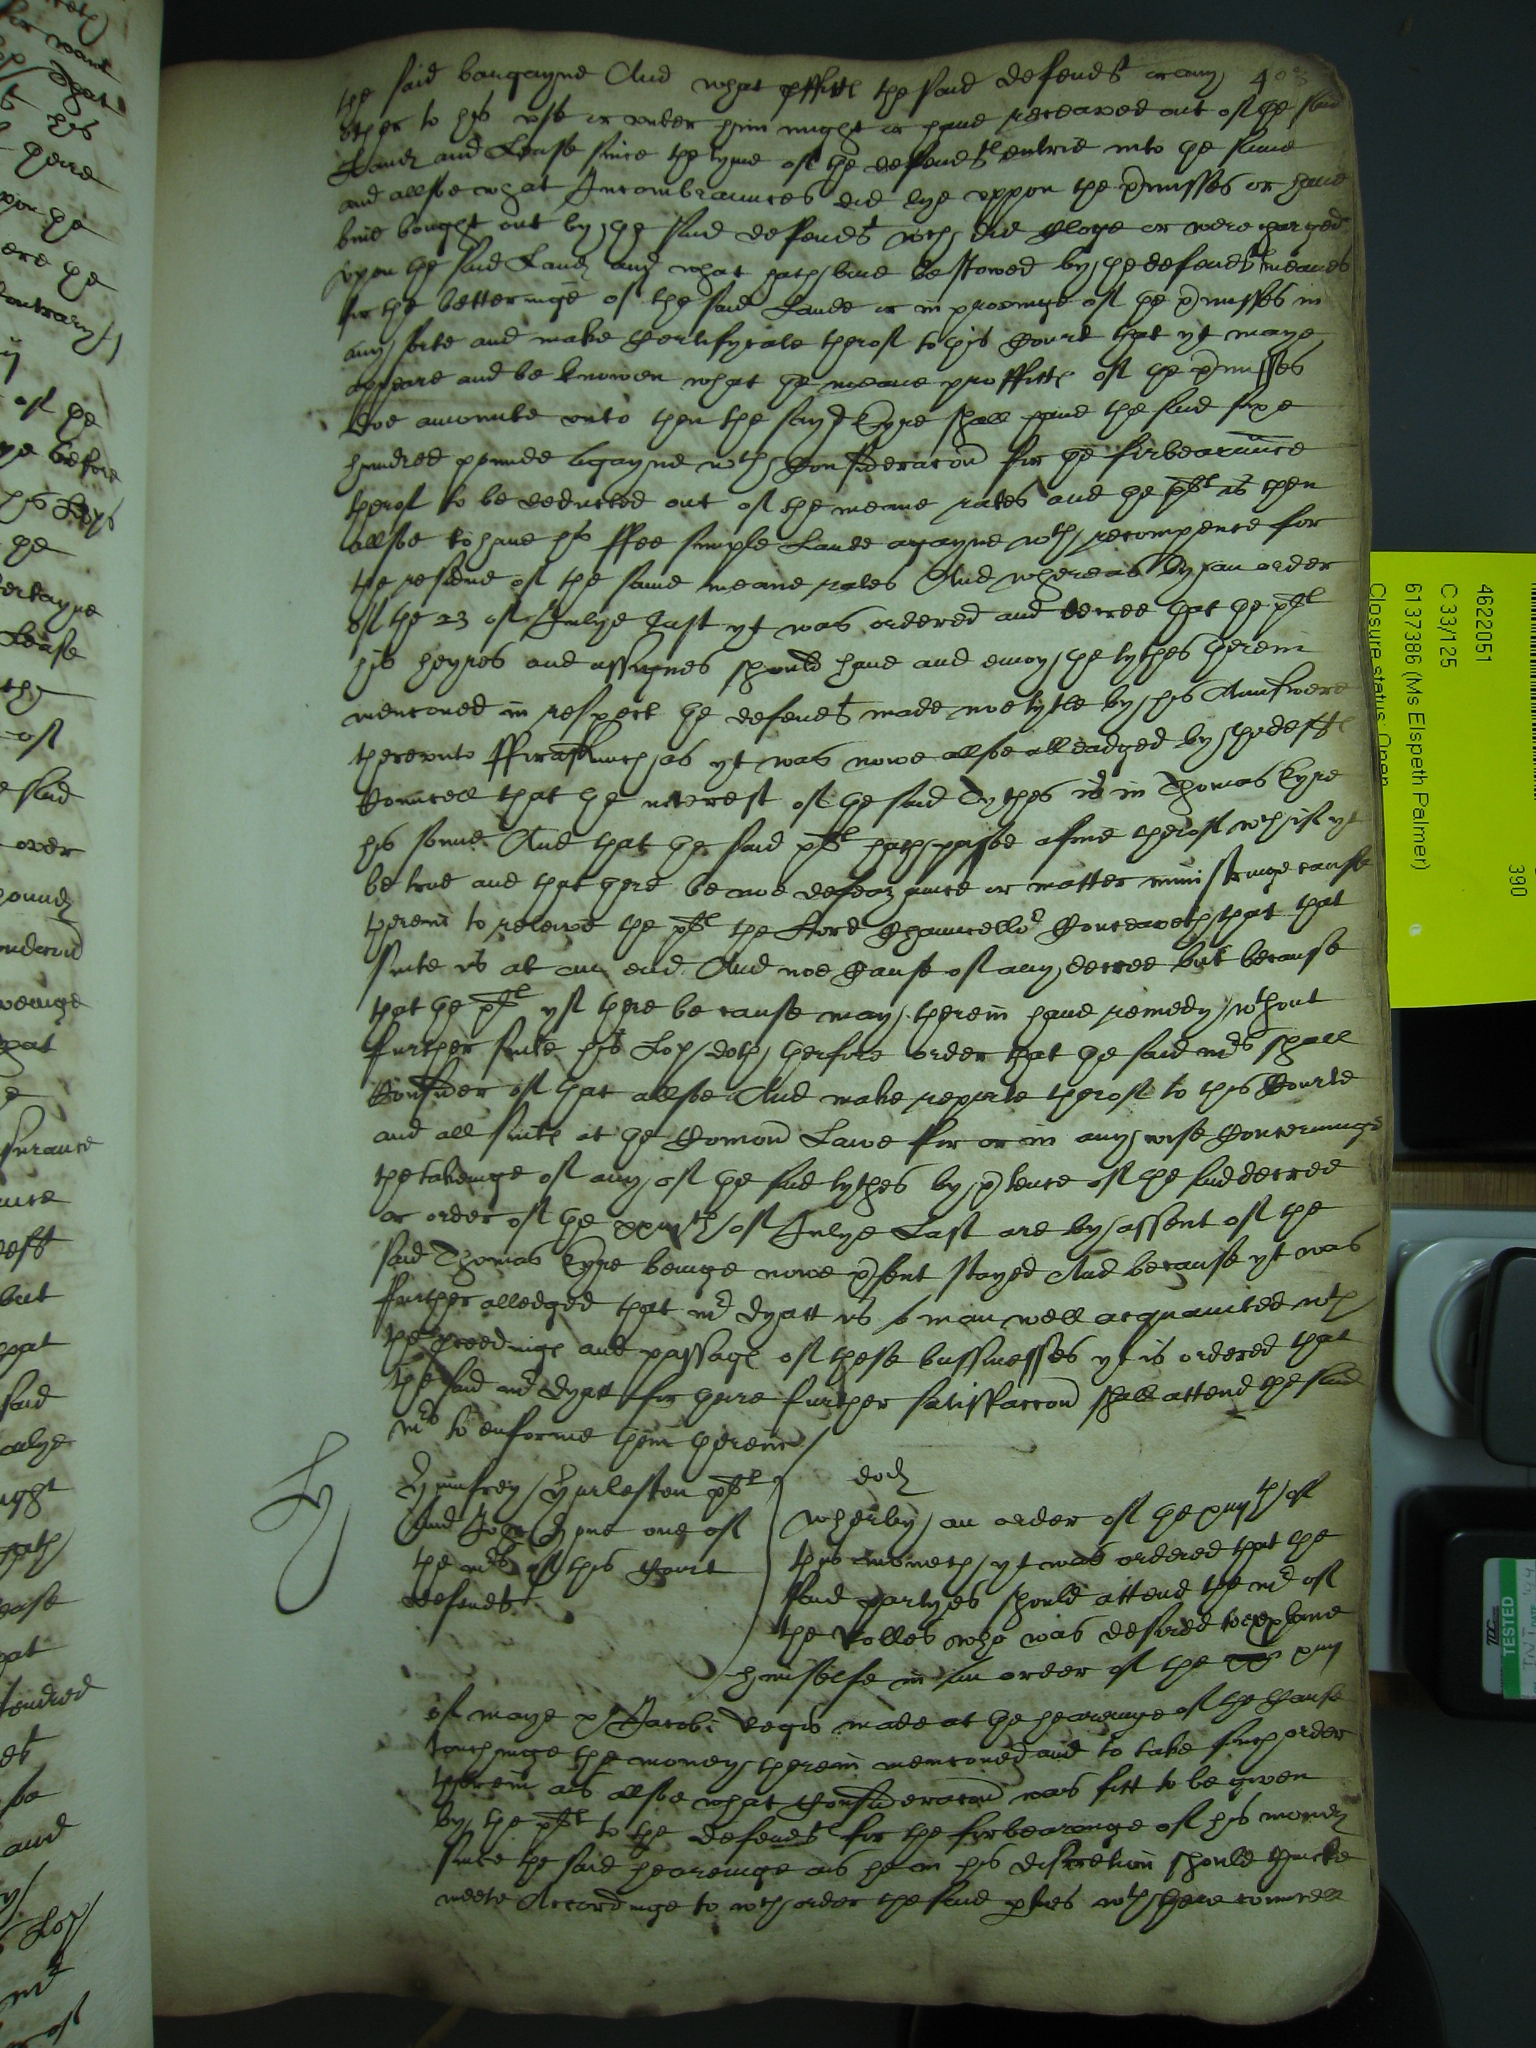 the said bargayne And what pffittℓ the said defendt or any 403
other to his vse or vnder him might or haue receaved out of the said
Landℓ and Lease since the tyme of the defendtℓ entrie into the same
and allsoe what Incombraunces did lye vppon the pmisses or haue
bine bought out by the said defendt wch did Cloge or were charged
vpon the said Landℓ and what hath bine bestowed by the defendtℓ meanes
for the betteringe of the said Lande or improvinge of the pmisses in
any sorte and make Certifycate therof to this Court that yt maye
appeare and be knowen what the meane proffittℓ of the pmisses
doe amounte vnto then the sayd Eyre shall haue the said sixe
hundred pounde agayne wth Consideracon for the forbearaunce
therof to be deducted out of the meane rates and the plt is then
allsoe to haue his ffee simple Lande agayne wth recompence for
the residue of the same meane rates And whereas by an order
of the 23 of Julye Last yt was ordered and decree that the plt
his heyres and assignes should haue and enioy the tythes therein
menconed in respect the defendt made noe tytle by his Aunswere
therevnto fforasmuch as yt was nowe allsoe alleadged by the deftℓ
Councell that the interest of the said Tythes is in Thomas Eyre
his sonne And that the said plt hath passed a fine therof wch if yt
be true and that there be noe defeazaunce or matter ministringe cause
therein to releive the plt the Lord Chauncellor Conceaveth that that
suite is at an end And noe Cause of any decree but because
that the plt yf there be cause may therein haue remedy wthout
further suite his Lop doth therfore order that the said mrs shall
Consider of that allsoe And make reporte therof to this Courte
and all suitℓ at the Comon Lawe for or in any wise Concerninge
the takeinge of any of the said tythes by ptence of the said decree
or order of the xxiijth of Julye Last are by assent of the
said Thomas Eyre beinge nowe psent stayed And because yt was
further alledged that mr dyatt is a man well acquainted wth
the pceedingℓ and passagℓ of these bussinesses yt is ordered that
the said mr dyatt for there further satisfaccon shall attend the said
mrs to enforme them therein
Hy
Humfrey Hurleston plt
And John Hone one of
the mrs of this Court
defendt
eodℓ
Wherby an order of the xiijth of
this moneth yt was ordered that the
said partyes should attend the mr of
the Rolles who was desired to explane
himselfe in an order of the xiij
of maye pº Jacobi Regis made at the hearinge of the Cause
touchinge the money therein menconed and to take such order
therein as allsoe what Consideracon was fitt to be given
by the plt to the defendt for the forbearinge of his money
since the said hearinge as he in his discretion should thincke
meete Accordinge to wch order the said pties wth there councell